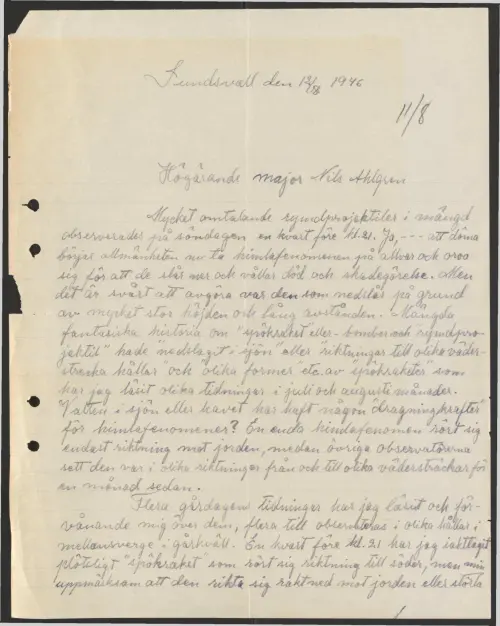 Sundsvall den 12/8 1946
11/8
Högärande major Nils Ahlgren
Mycket omtalande rymdprojektiler i mängd
observerades på söndagen en kvart före kl. 21. Ja, --- att döma
börjar allmänheten nu ta himlafenomenen på allvar och oroa
sig för att de slår ner och vållar död och skadegörelse. Men
det är svårt att avgöra var den som nedslår på grund
av mycket stor höjden och lång avstånden. Mångda
fantasirika historia om "spökraket" eller -bomber och "rymdpro-
jektil" hade "nedslaget i sjön" eller "riktningar till olika väder-
strecka hållar och "olika former" etc. av "spökraketer som
har jag läst olika tidningar i juli och augusti månader.
Vatten i sjön eller havet har haft någon "dragningskrafter"
för himlafenomener? En enda himlafenomen rört sig
endast riktning mot jorden, medan övriga observatörerna
sett den var i olika riktningar från och till olika väderstreckar för
en månad sedan.
Flera gårdagens tidningar har jag läst och för-
vånande mig över den, flera till observeras i olika hållar i
mellansverge i går kväll. En kvart före kl. 21 har jag iakttagit
plötsligt "spökraket" som rört sig riktning till söder, men min
uppmärksam att den rikta sig rakt ned mot jorden eller störta